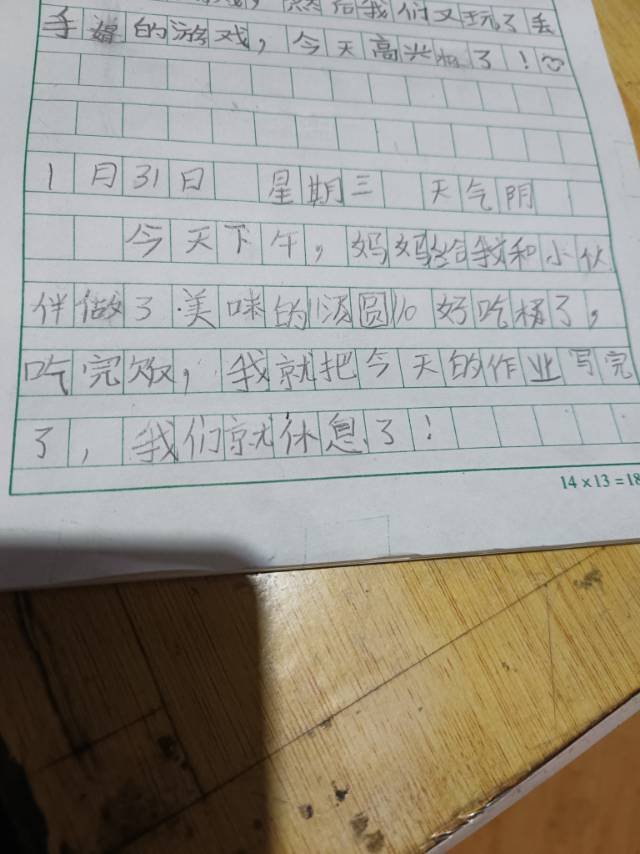 然后我们又玩了丢
手绢的游戏，今天高兴极了！♡
1月31日 星期三 天气阴
今天下午，妈妈给我和小伙
伴做了美味的汤圆，好吃极了，
吃完饭，我就把今天的作业写完
了，我们就休息了！
14×13=18